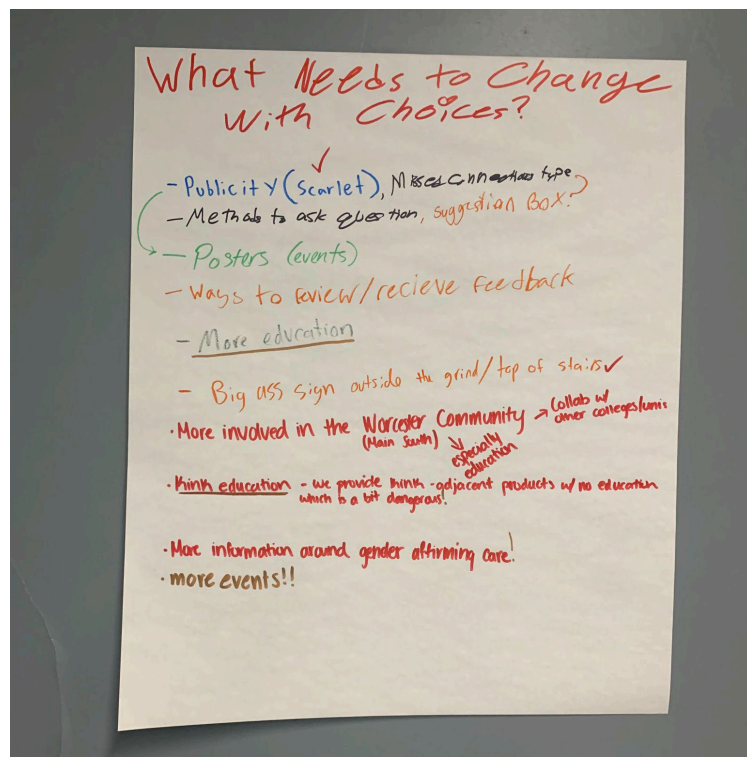 What Needs to Change
With Choices?
- Publicity (Scarlet), Missed connections type
- Methods to ask question, suggestion BOX?
- Posters (events)
- Ways to review/recieve feedback
- More education
- Big ass sign outside the grind/top of stairs ✓
• More involved in the Worcester Community → Collab w/
(Main South) other colleges/unis
especially
education
• kink education - we provide kink-adjacent products w/ no education
which is a bit dangerous!
• More information around gender affirming care!
• more events!!